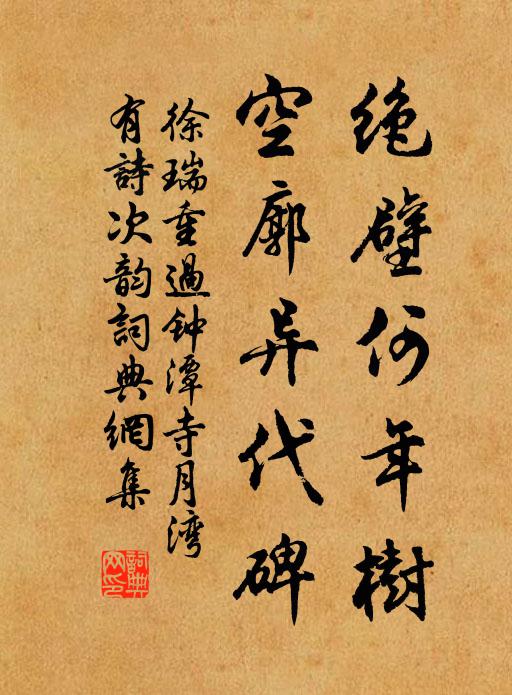 绝壁何年樹
空廓异代碑
徐瑞重過钟潭寺月湾
有詩次韵詞典網集
詞典網印